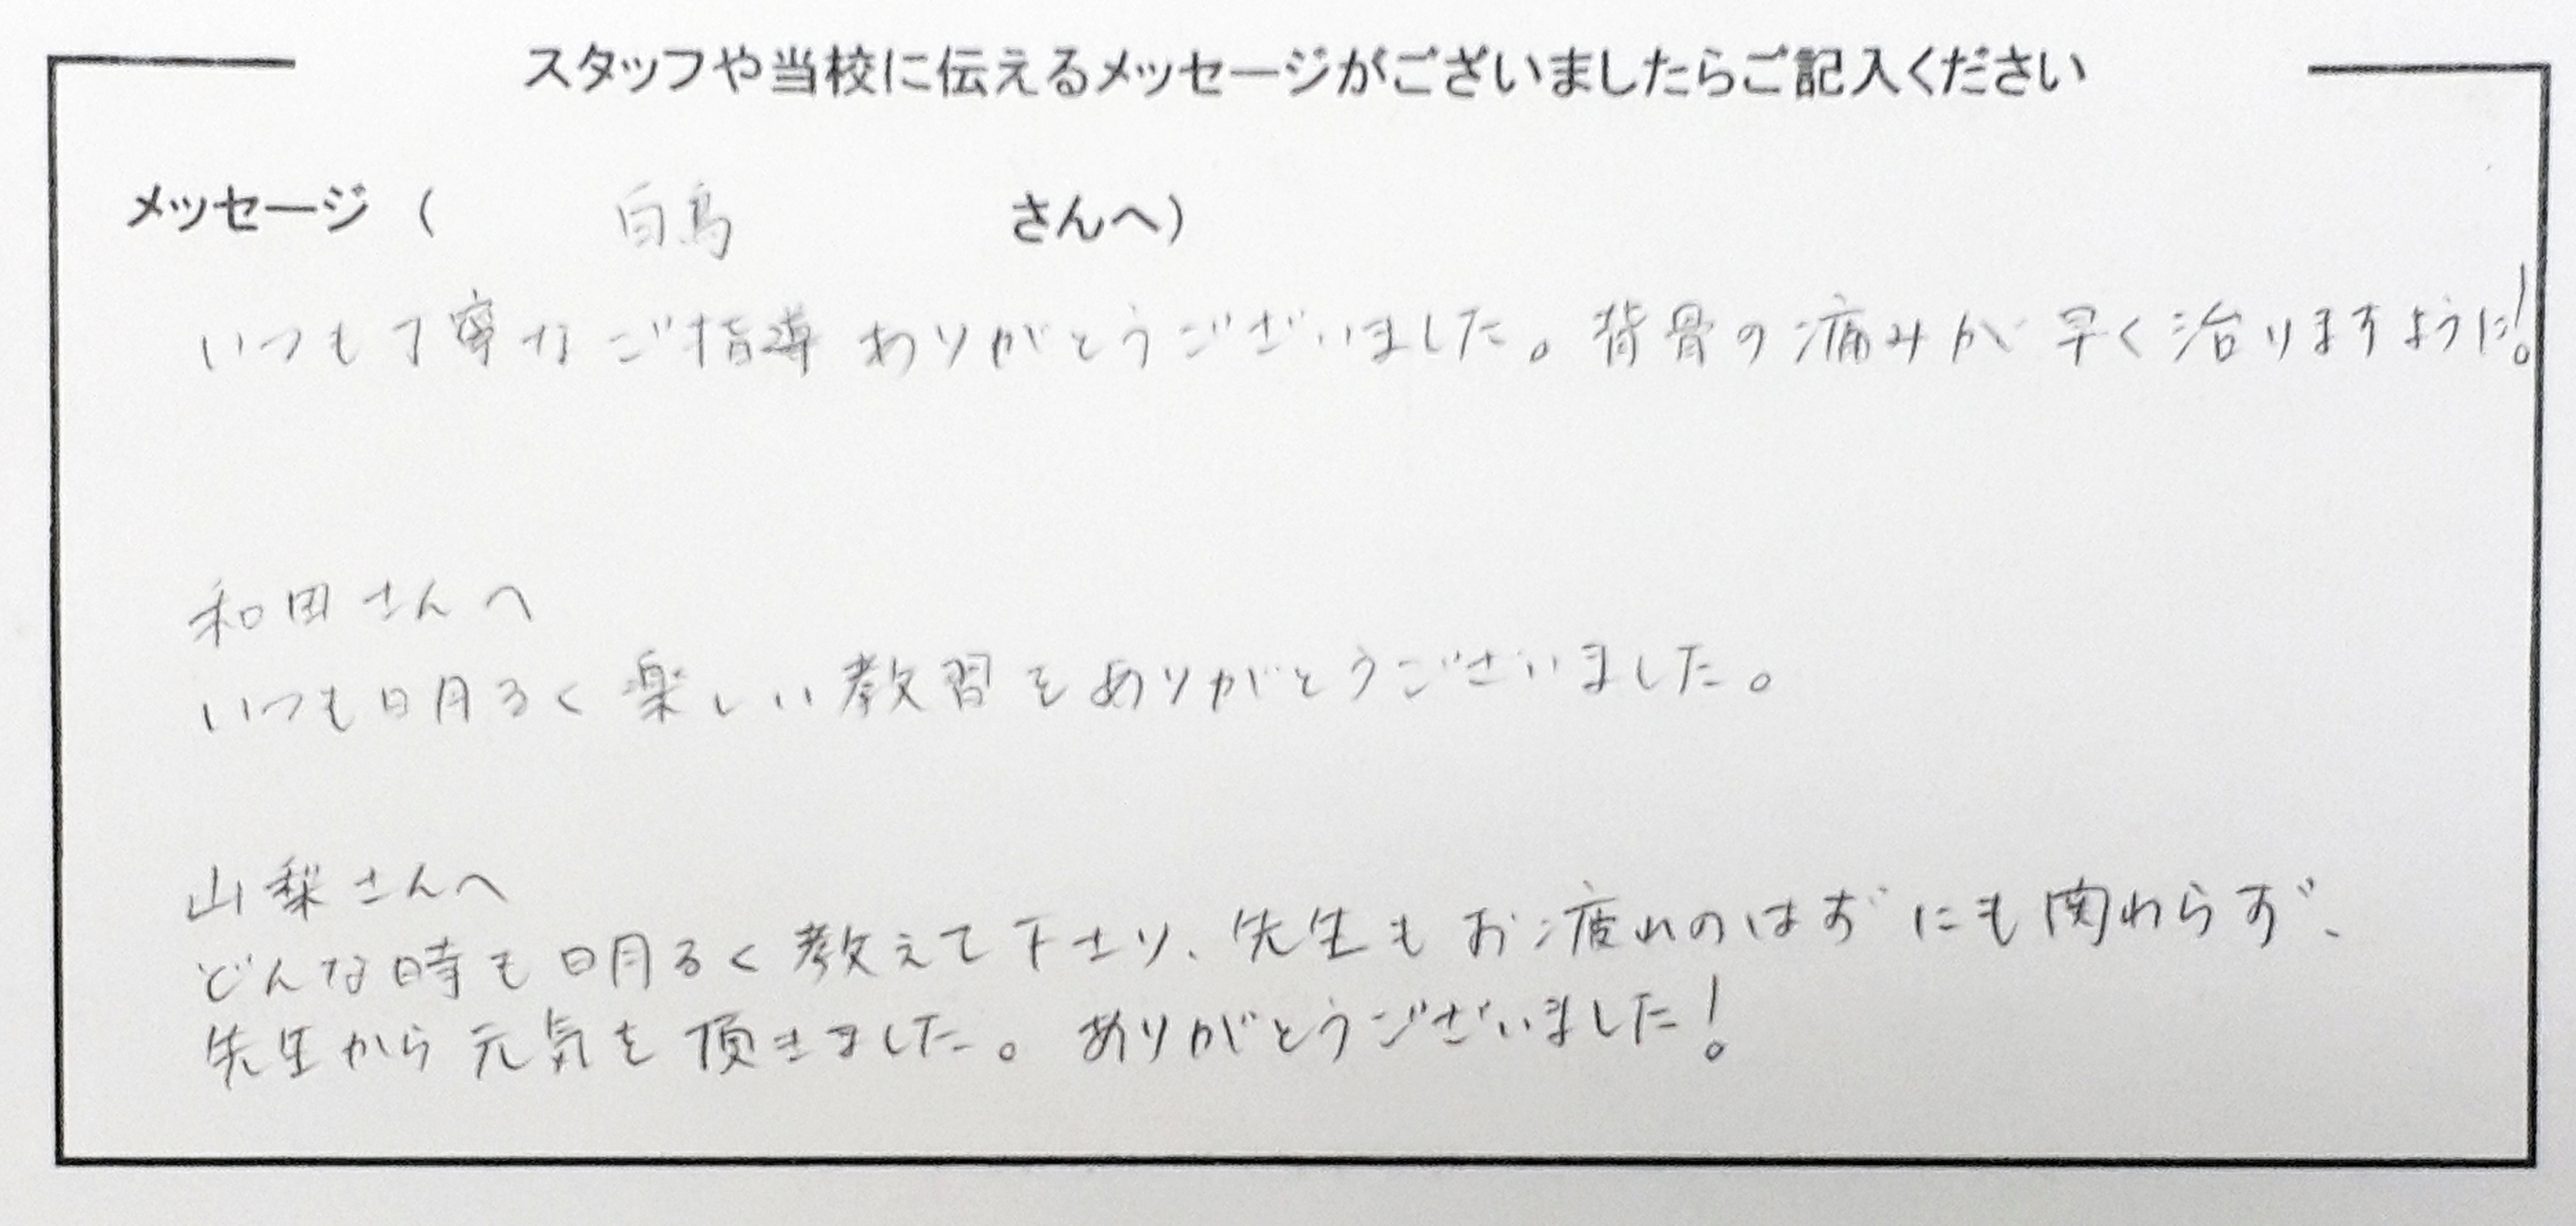 スタッフや当校に伝えるメッセージがございましたらご記入ください
メッセージ ( 白鳥 さんへ)
いつも丁寧なご指導ありがとうございました。背骨の痛みが早く治りますように!
和田さんへ
いつも明るく楽しい教習をありがとうございました。
山梨さんへ
どんな時も明るく教えて下さり、先生もお疲れのはずにも関わらず、
先生から元気を頂きました。ありがとうございました!